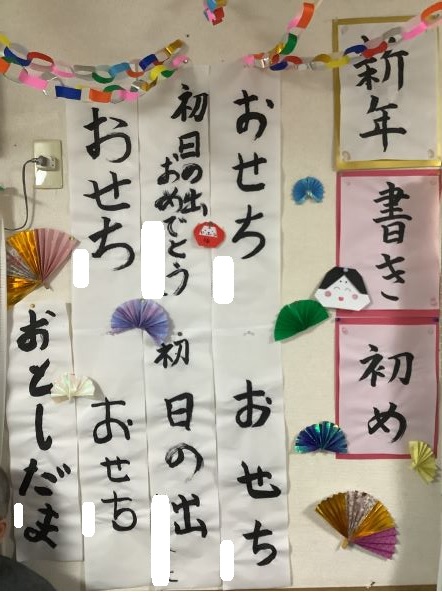 新年
書き
初め
おせち
おせち
初日の出
おめでとう
初日の出
おせち
おせち
おとしだま